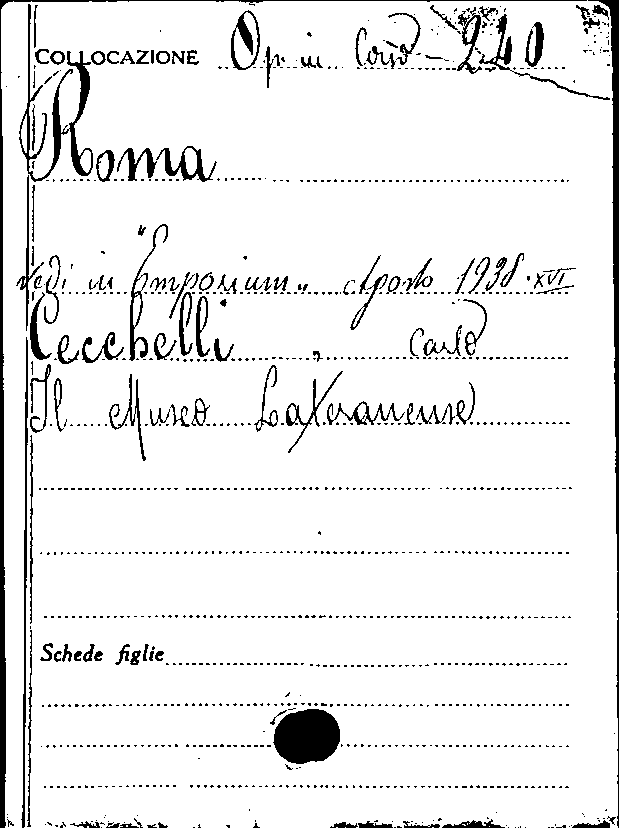 COLLOCAZIONE Op. in Corso - 240
Roma
vedi in "Emporium" Agosto 1938 · XVI
Cecchelli , Carlo
Il Museo Lateranense
Schede figlie